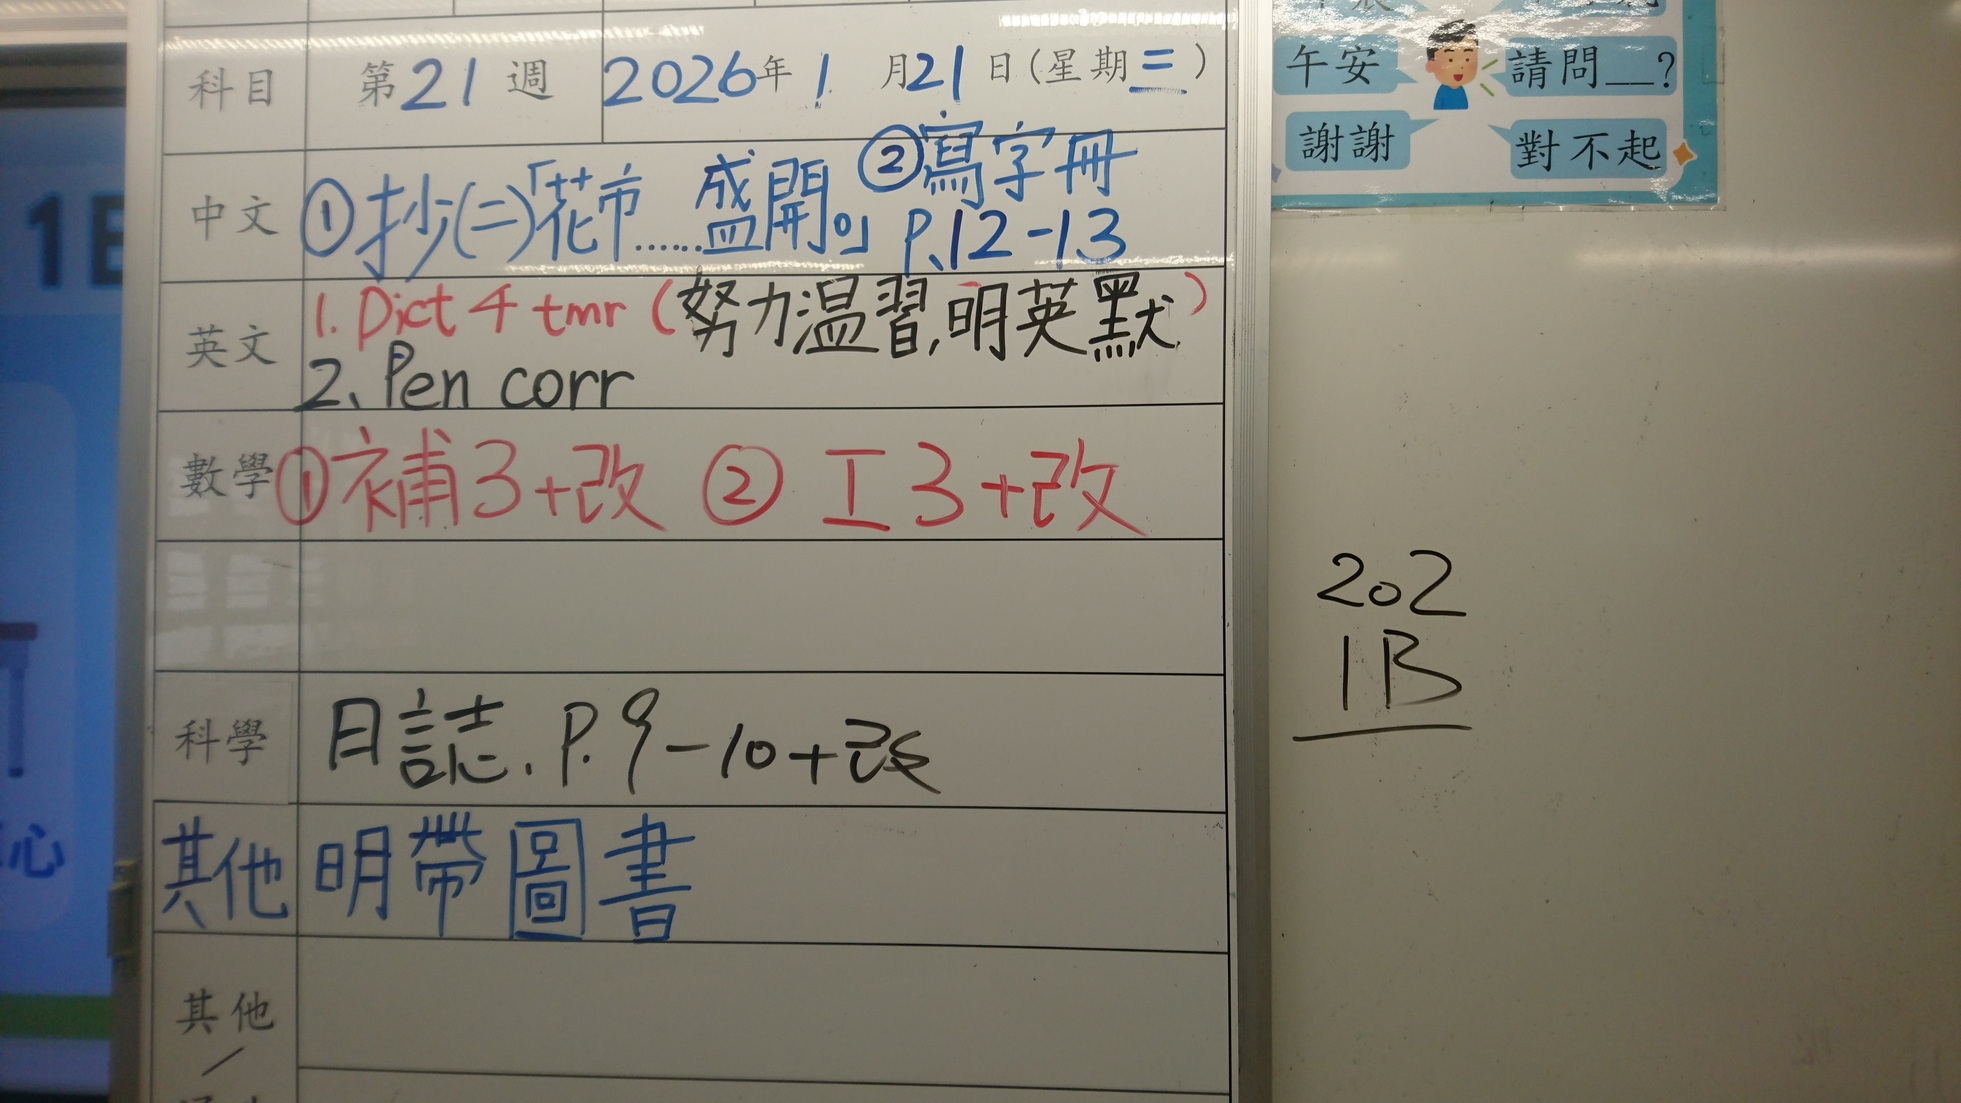 科目 第21週 2026年1月21日(星期三)
中文 ①抄(二)「花市……盛開。」 ②寫字冊 P.12-13
英文 1. Dict 4 tmr (努力溫習,明英默)
2. Pen corr
數學 ①補3+改 ② 工3+改
科學 日誌. P.9-10+改
其他 明帶圖書
其他
/
午安
請問__?
謝謝
對不起
202
1B
1B
心